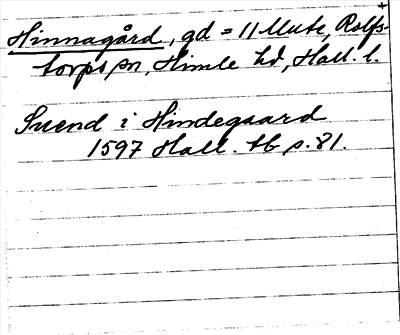 Hinnagård, gd = 11 Mute, Rolfs-
torps sn, Himle hd, Hall. l.
Suend i Hindegaard
1597 Hall. tb s. 81.